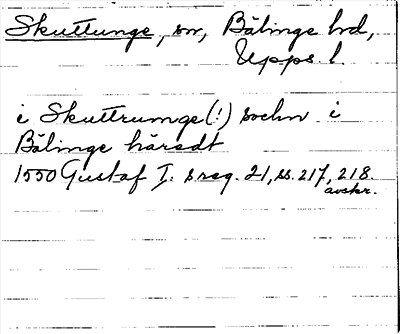 Skuttunge, sn, Bälinge hd,
Upps. l.
i Skuttrumge(!) sochn i
Bälinge häradt
1550 Gustaf I: s reg. 21, ss. 217, 218.
avskr.